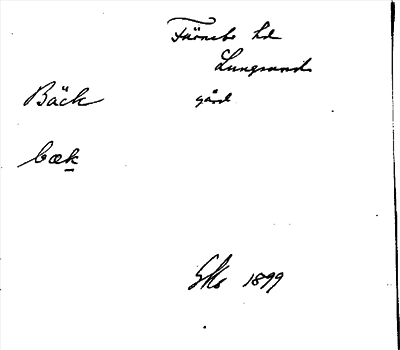 Färnebo hd
Lungsund
Bäck gård
bæk
1899